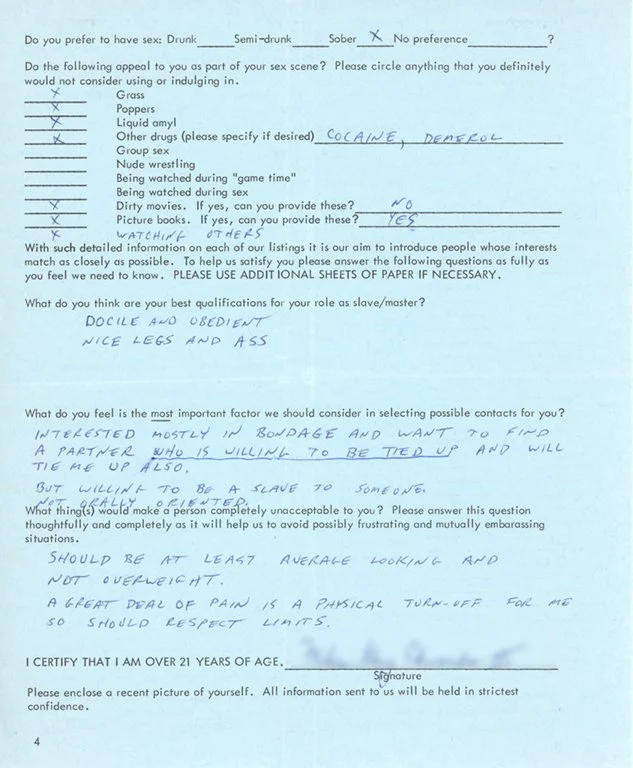 Do you prefer to have sex: Drunk______ Semi-drunk______ Sober X No preference______?
Do the following appeal to you as part of your sex scene? Please circle anything that you definitely
would not consider using or indulging in.
X Grass
X Poppers
X Liquid amyl
X Other drugs (please specify if desired) COCAINE, DEMEROL
Group sex
Nude wrestling
Being watched during "game time"
Being watched during sex
X Dirty movies. If yes, can you provide these? NO
X Picture books. If yes, can you provide these? YES
X WATCHING OTHERS
With such detailed information on each of our listings it is our aim to introduce people whose interests
match as closely as possible. To help us satisfy you please answer the following questions as fully as
you feel we need to know. PLEASE USE ADDITIONAL SHEETS OF PAPER IF NECESSARY.
What do you think are your best qualifications for your role as slave/master?
DOCILE AND OBEDIENT
NICE LEGS AND ASS
What do you feel is the most important factor we should consider in selecting possible contacts for you?
INTERESTED MOSTLY IN BONDAGE AND WANT TO FIND
A PARTNER WHO IS WILLING TO BE TIED UP AND WILL
TIE ME UP ALSO.
BUT WILLING TO BE A SLAVE TO SOMEONE.
NOT ORALLY ORIENTED.
What thing(s) would make a person completely unacceptable to you? Please answer this question
thoughtfully and completely as it will help us to avoid possibly frustrating and mutually embarassing
situations.
SHOULD BE AT LEAST AVERAGE LOOKING AND
NOT OVERWEIGHT.
A GREAT DEAL OF PAIN IS A PHYSICAL TURN-OFF FOR ME
SO SHOULD RESPECT LIMITS.
I CERTIFY THAT I AM OVER 21 YEARS OF AGE.
Signature
Please enclose a recent picture of yourself. All information sent to us will be held in strictest
confidence.
4